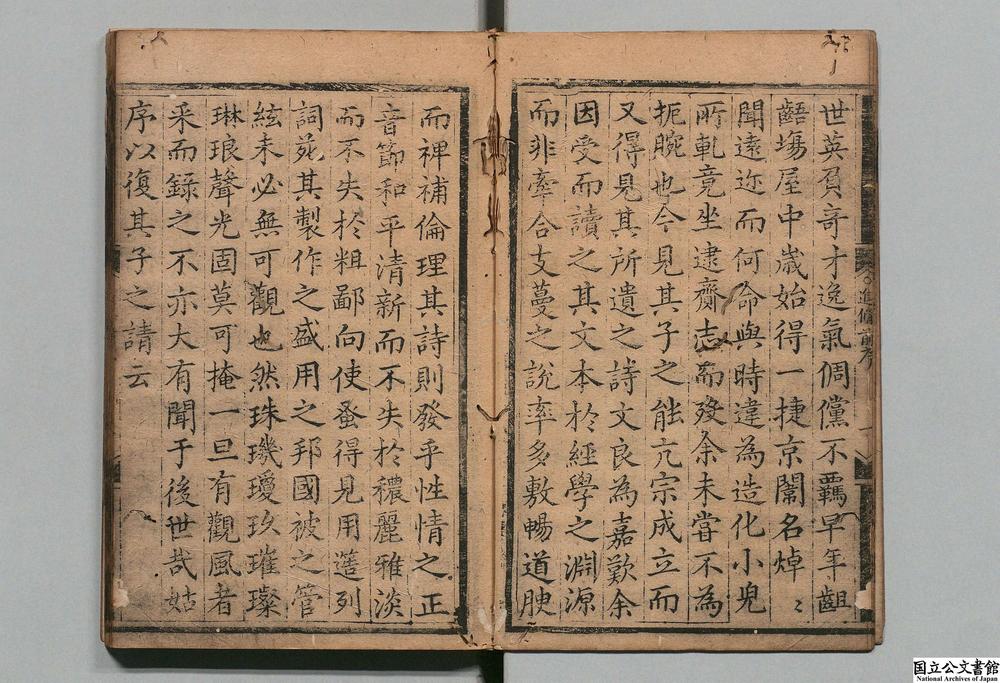 世英負奇才逸氣倜儻不羈早年齟
齬塲屋中歲始得一捷京闈名焯〻
聞遠迩而何命與時違為造化小兒
所軋竟坐逮齎志而歿余未甞不為
扼腕也今見其子之能亢宗成立而
又得見其所遺之詩文良為嘉歎余
因受而讀之其文本於經學之淵源
而非牽合支蔓之說率多敷暢道腴
而裨補倫理其詩則發乎性情之正
音節和平清新而不失於穠麗雅淡
而不失於粗鄙向使蚤得見用簉列
詞苑其製作之盛用之邦國被之管
絃未必無可觀也然珠璣瓊玖璀璨
琳琅聲光固莫可掩一旦有觀風者
采而録之不亦大有聞于後世哉姑
序以復其子之請云
進修
一
国立公文書館
National Archives of Japan